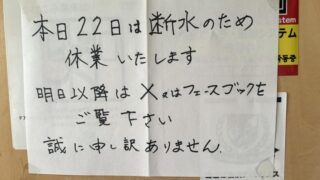 本日22日は断水のため
休業いたします
明日以降は X又はフェースブックを
ご覧下さい
誠に申し訳ありません.
System
テム